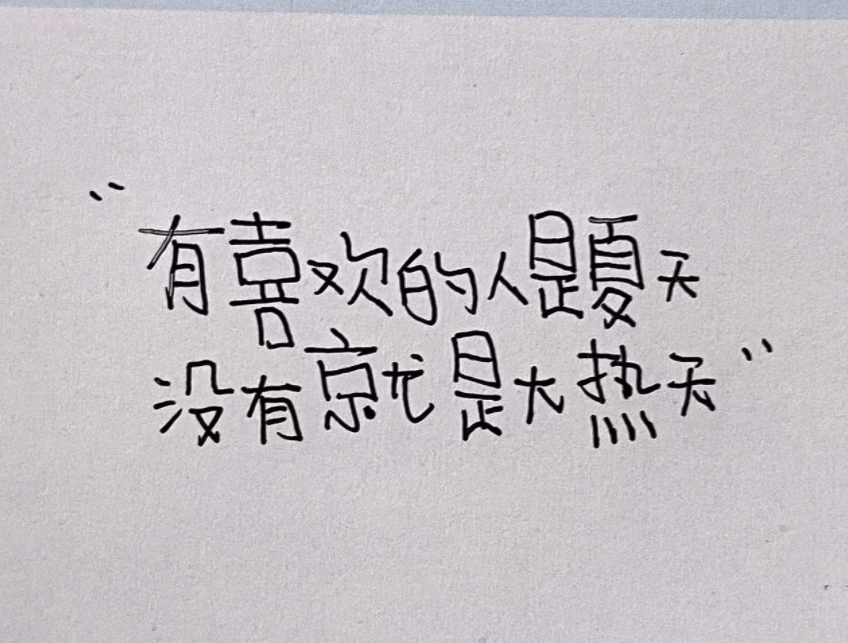 “有喜欢的人是夏天
没有就是大热天”